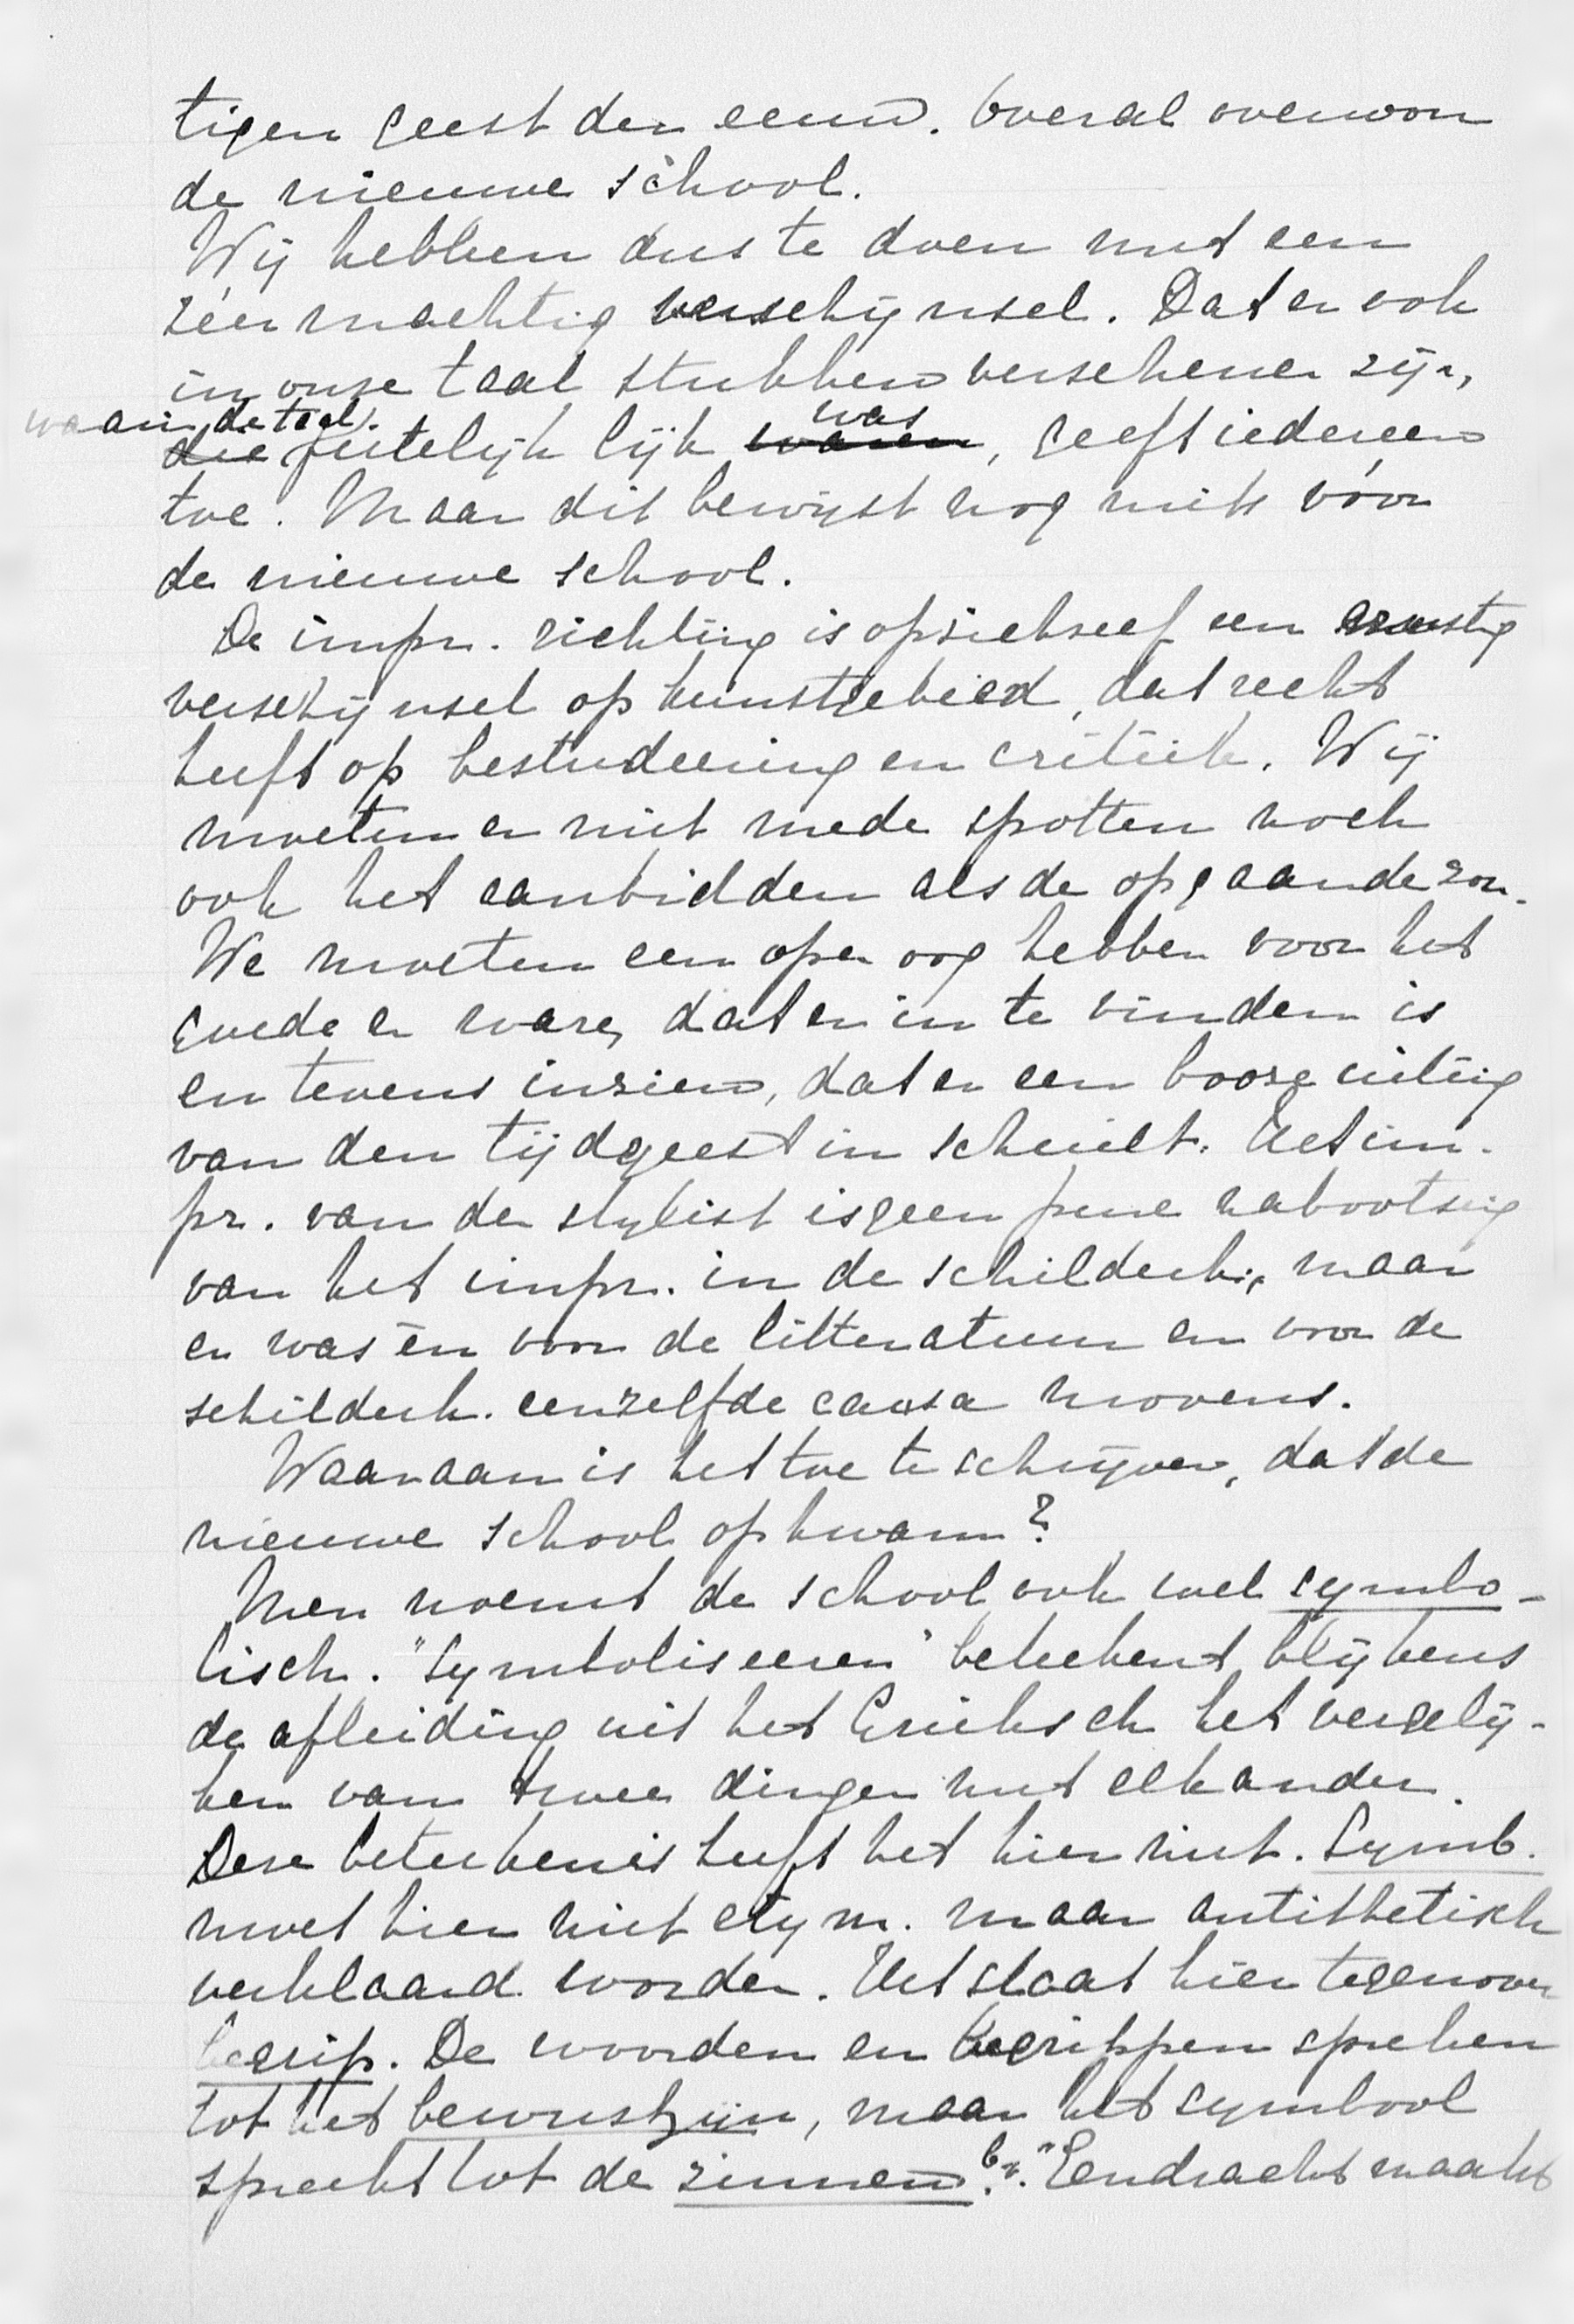 tigen geest der eeuw. Overal overwon
de nieuwe school.
Wij hebben dus te doen met een
zéér machtig verschijnsel. Dat er ook
in onze taal stukken verschenen zijn,
waarin de taal
die feitelijk lijk waren was, geeft iedereen
toe. Maar dit bewijst nog niets vóór
de nieuwe school.
De impr. richting is opzichzelf een ernstig
verschijnsel op kunstgebied, dat recht
heeft op bestudeering en critiek. Wij
moeten er niet mede spotten noch
ook het aanbidden als de opgaande zon.
We moeten een open oog hebben voor het
goede en ware, dat er in te vinden is
en tevens inzien, dat er een booze uiting
van den tijdgeest in schuilt. Het im-
pr. van de stylist is geen pure nabootsing
van het impr. in de schilderk., maar
er was èn voor de litteratuur en voor de
schilderk. eenzelfde causa movens.
Waaraan is het toe te schrijven, dat de
nieuwe school opkwam?
Men noemt de school ook wel symbo-
lisch. "Symboliseeren" beteekent blijkens
de afleiding uit het Grieksch het vergelij-
ken van twee dingen met elkander.
Deze beteekenis heeft het hier niet. Symb.
moet hier niet etym. maar antithetisch
verklaard worden. Het staat hier tegenover
begrip. De woorden en begrippen spreken
tot het bewustzijn, maar het symbool
spreekt tot de zinnen. bv. "Eendracht maakt